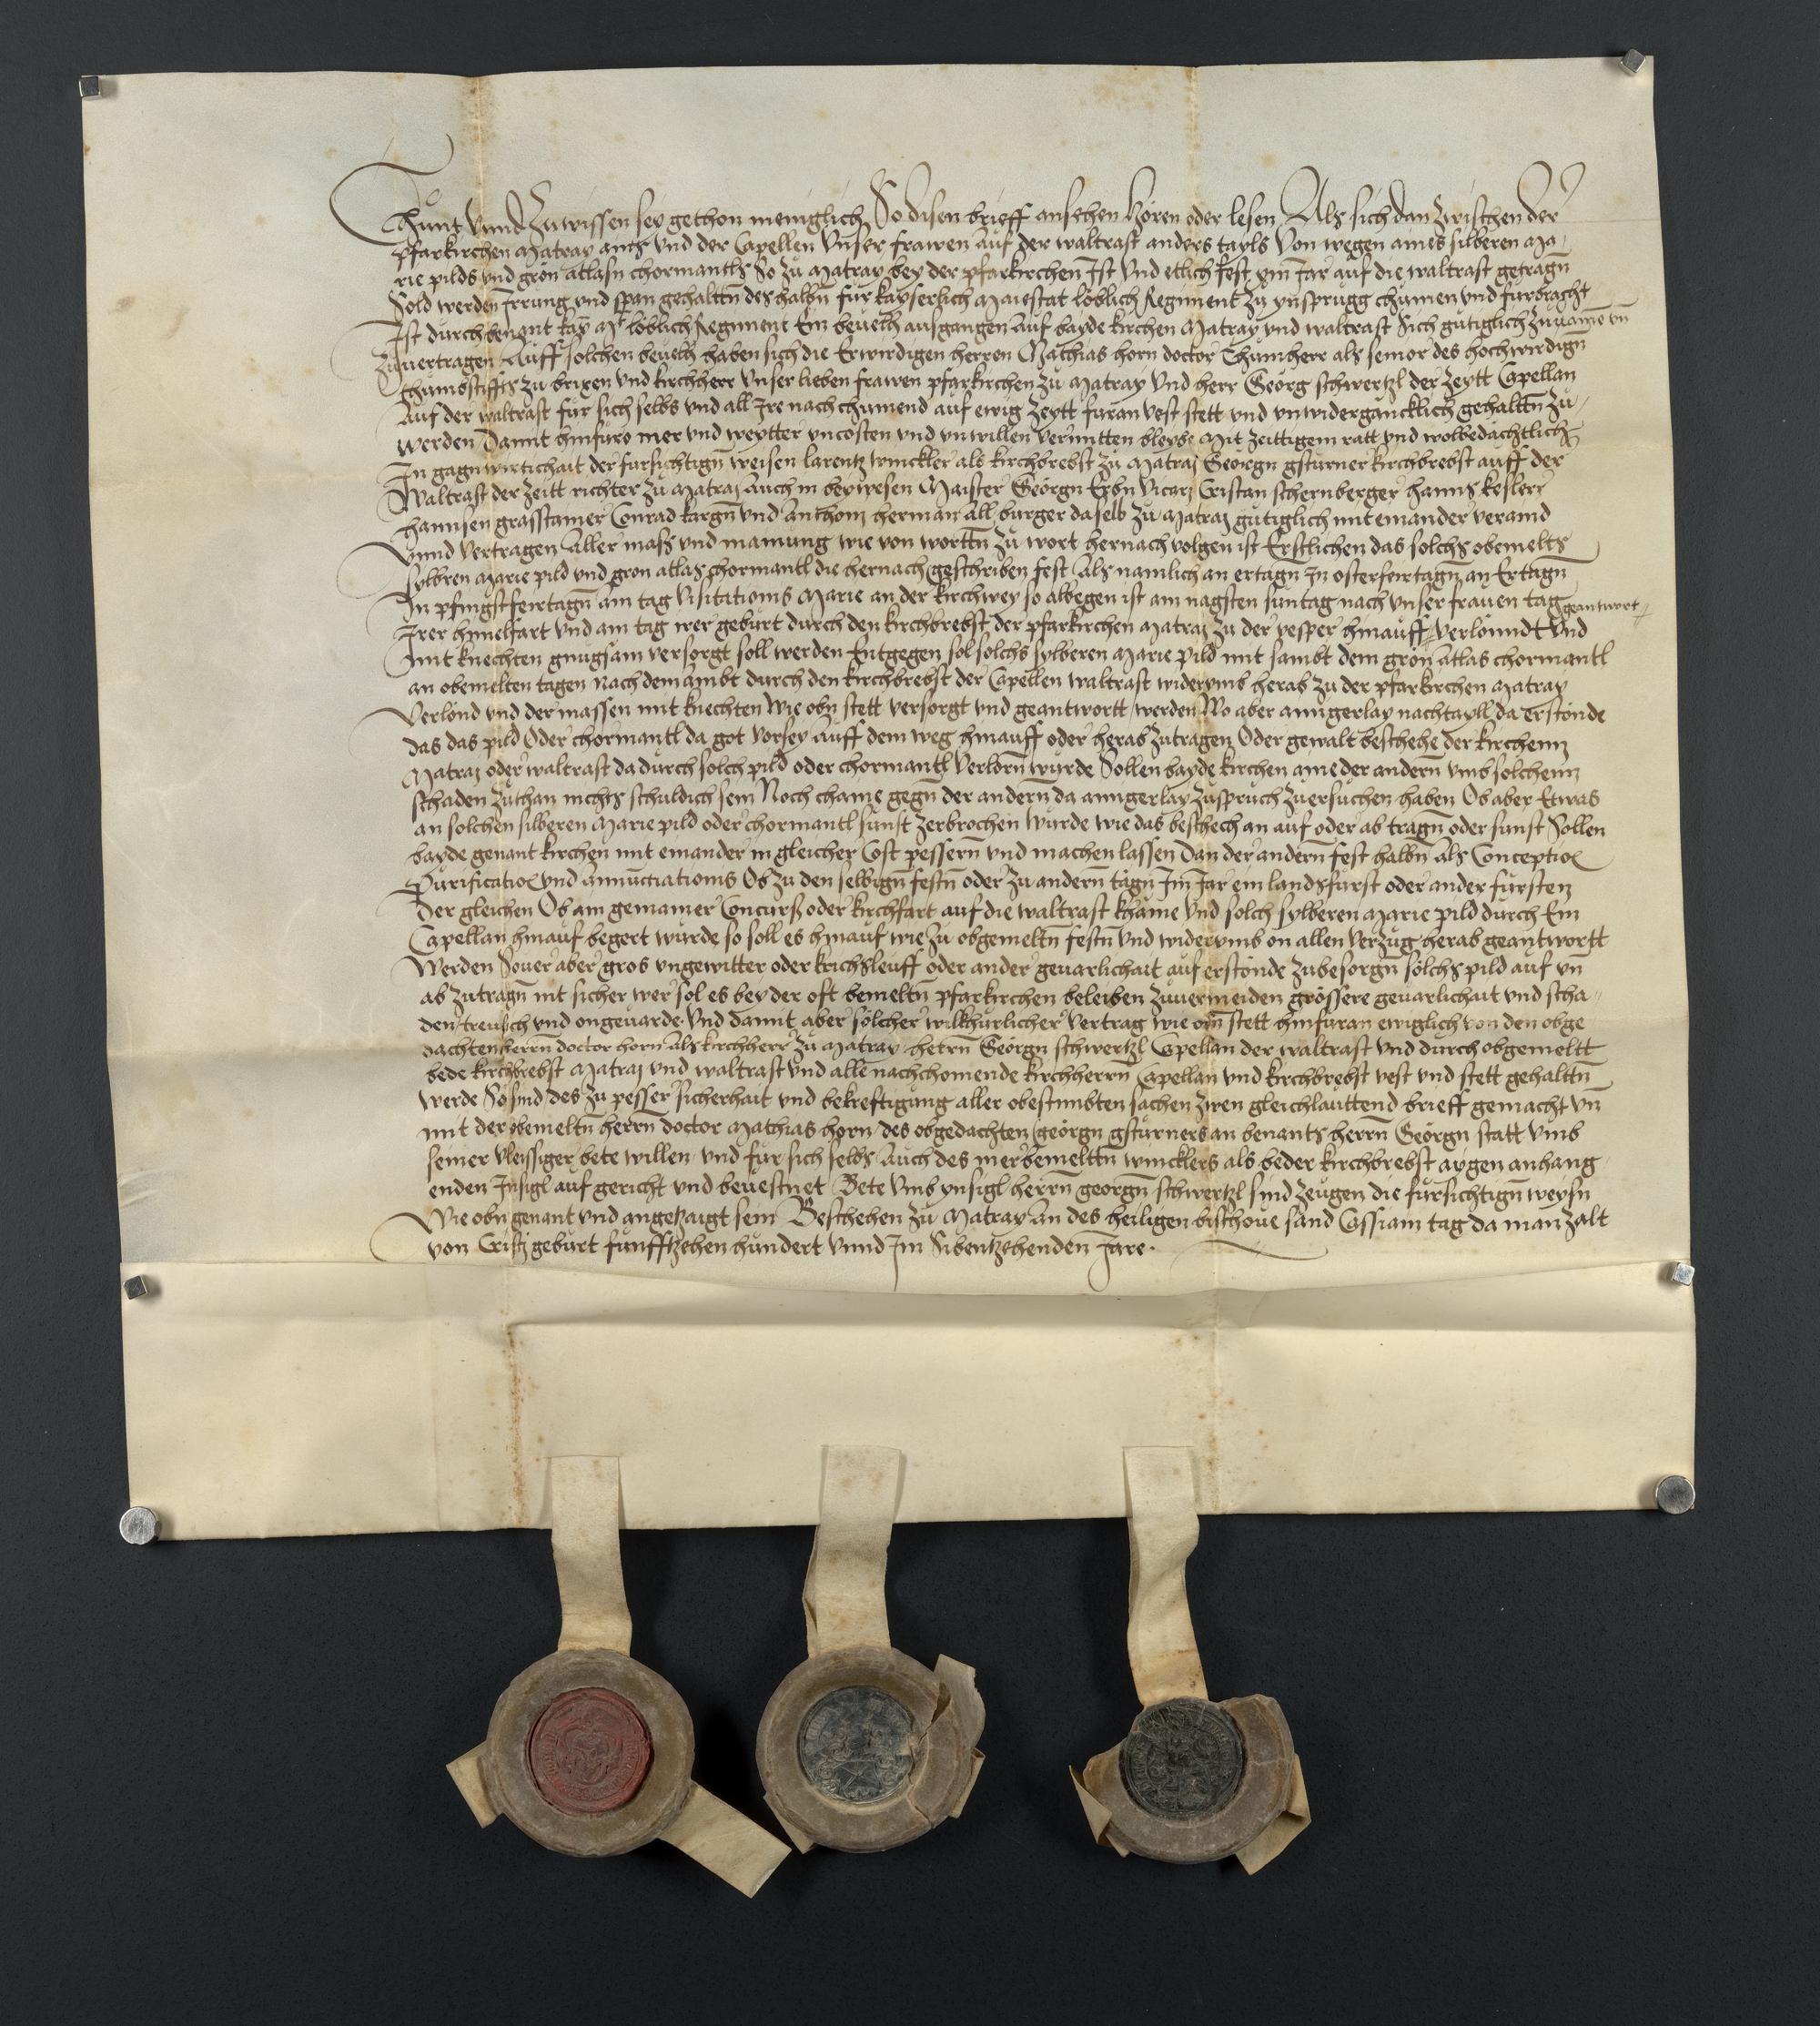 Chunt vnnd Zuwissen sey gethon meniglich So disen brieff ansehen hören oder lesen Als sich dan zwischen der
pfarkirchen Matray ains vnd der Capellen vnser frawen auf der waltrast anders tayls Von wegen aines silberen Ma-
rie pilds vnd grön atlasn chormantls So zu Matray bey der pfarkirchen Ist vnd etlich fest ym Jar auf die waltrast getragn̄
Sold werden Irrung vnd span gehalttn̄ deshalbn̄ fur kayserlich Maiestat löblich Regiment zu ynsprugg chumen vnd furbracht
Ist durch benant kay Mt löblich Regiment Ein beuelh ausgangen Auf bayde kirchen Matray vnd waltrast Sich gutiglich zuuaine vn̄
Zuuertragen Auff solchen beuelh haben sich die Erwirdigen herren Mathias horn doctor Thumherr als senior des hochwirdign̄
thumbstiffts zu brixen vnd kirchherr vnser lieben frawen pfarkirchen zu Matray Vnd herr Georg schwertzl der zeytt Capellan
Auf der waltrast fur sich selbs vnd all Ire nachchumend auf ewig zeytt furan vest stett vnd vnwidergäncklich gehalttn̄ zu
werden Damit hinfuro mer vnd weytter vncosten vnd vnwillen vermitten bleybe Mit zeittigem ratt vnd wolbedächtlich
In gagnwirtichait der fursichtign̄ weisen larentz winckler als kirchbrebst zu Matraj Georgn gsturner kirchbrebst auff der
Waltrast der zeitt richter zu Matraj auch in beywesen Maister Georgn Erbn Vicarj Cristan schernberger hanns kesler
hannsen grasstamer Conrad kargn̄ vnd anthonj herman all burger daselb zu Matraj gutiglich mit einander veraind
Vnnd vertragen Aller mass vnd mainung wie von worttn̄ zu wort hernach volgen ist Erstlichen das solchs obemelts
sylbren Marie pild vnd gron atlas chormantl die hernach geschriben fest Als namlich an ertagn̄ In osterfeirtagn̄ an Ertagn̄
In pfingstfeirtagn̄ am tag visitationis Marie an der kirchwey so albegen ist am nagsten suntag nach vnser frauen tag
Irer himelfart vnd am tag irer geburt durch den kirchbrebst der pfarkirchen Matraj zu der vesper hinauff geantwort verlönndt vnd
mit knechten gnugsam versorgt soll werden Entgegen sol solchs sylberen Marie pild mit sambt dem grön atlas chormantl
an obemelten tagen nach dem ambt durch den kirchbrebst der Capellen waltrast widerumb herab zu der pfarkirchen Matray
Verlönd vnd dermassen mit knechten wie obn̄ stett versorgt vnd geantwortt werden Wo aber ainigerlay nachtayll da erstönde
das das pild Oder chormantl da got vorsey auff dem weg hinauff oder herab zutragen Oder gewalt beschehe der kirchenn
Matraj oder waltrast dadurch solch pild oder chormantl verlorn̄ wurde Sollen bayde kirchen aine der andern̄ vmb solchenn
schaden zuthan nichts schuldich sein Noch chaine gegn̄ der andern̄ da ainigerlay zuspruch zuersuchen haben Ob aber Etwas
an solchen silberen Marie pild oder chormantl sunst zerbrochen wurde wie das beschech an auf oder ab tragn̄ oder sunst Sollen
bayde genant kirchen mit einander in gleicher Cost pessern̄ vnd machen lassen Dan der andern̄ fest halbn̄ als Conception
Purification vnd Annuctiationis Ob zu den selbign̄ festn̄ oder zu andern̄ tagn̄ Im Jar ein landsfurst oder ander fursten
Der gleichen Ob ain gemainer Concurs oder kirchfart auf die waltrast khäme vnd solch sylberen Marie pild durch Ein
Capellan hinauf begert wurde so soll es hinauf wie zu obgemeltn̄ festn̄ vnd widerumb on allen verzug herab geantwortt
Werden Souer aber gros vngewitter oder krichsleuff oder ander geuarlichait auf erstönde zubesorgn̄ solchs pild auf vn̄
ab zutragn̄ nit sicher wer sol es bey der oft bemeltn̄ pfarkirchen beleiben zuuermeiden grössere geuarlichait vnd scha-
den treulich vnd ongeuarde Vnd damit aber solcher wilkhurlicher vertrag wie obn̄ stett hinfuran ewiglich von den obge
dachten herrn doctor horn als kirchherr zu Matray herrn̄ Georgn schwertzl Capellan der waltrast vnd durch obgemeltt
bede kirchbrebst Matraj vnd waltrast vnd alle nachchomende kirchherrn̄ Capellan vnd kirchbrebst vest vnd stett gehalttn̄
werde So sind des zu pesser sicherhait vnd bekreftigung aller obestimbten sachen zwen gleichlauttend brieff gemacht vn̄
mit der obemeltn̄ herrn doctor Mathias horn des obgedachten georgn gsturners an benants herrn̄ Georgn statt vmb
seiner vleissiger bete willen vnd fur sich selbs Auch des merbemelttn̄ wincklers als beder kirchbrebst aygen anhang
enden Insigl auf gericht vnd beuestnet Bete vmb ynsigl herrn̄ georgn̄ schwertzl sind zeugen die fursichtign̄ weysn̄
Wie obn̄ genant vnd angetzaigt sein Beschehen zu Matray An des heiligen bischoue sand Cassiam tag da man zalt
von Cristj geburt funfftzehen hundert vnnd Im Sibentzehenden Jare.